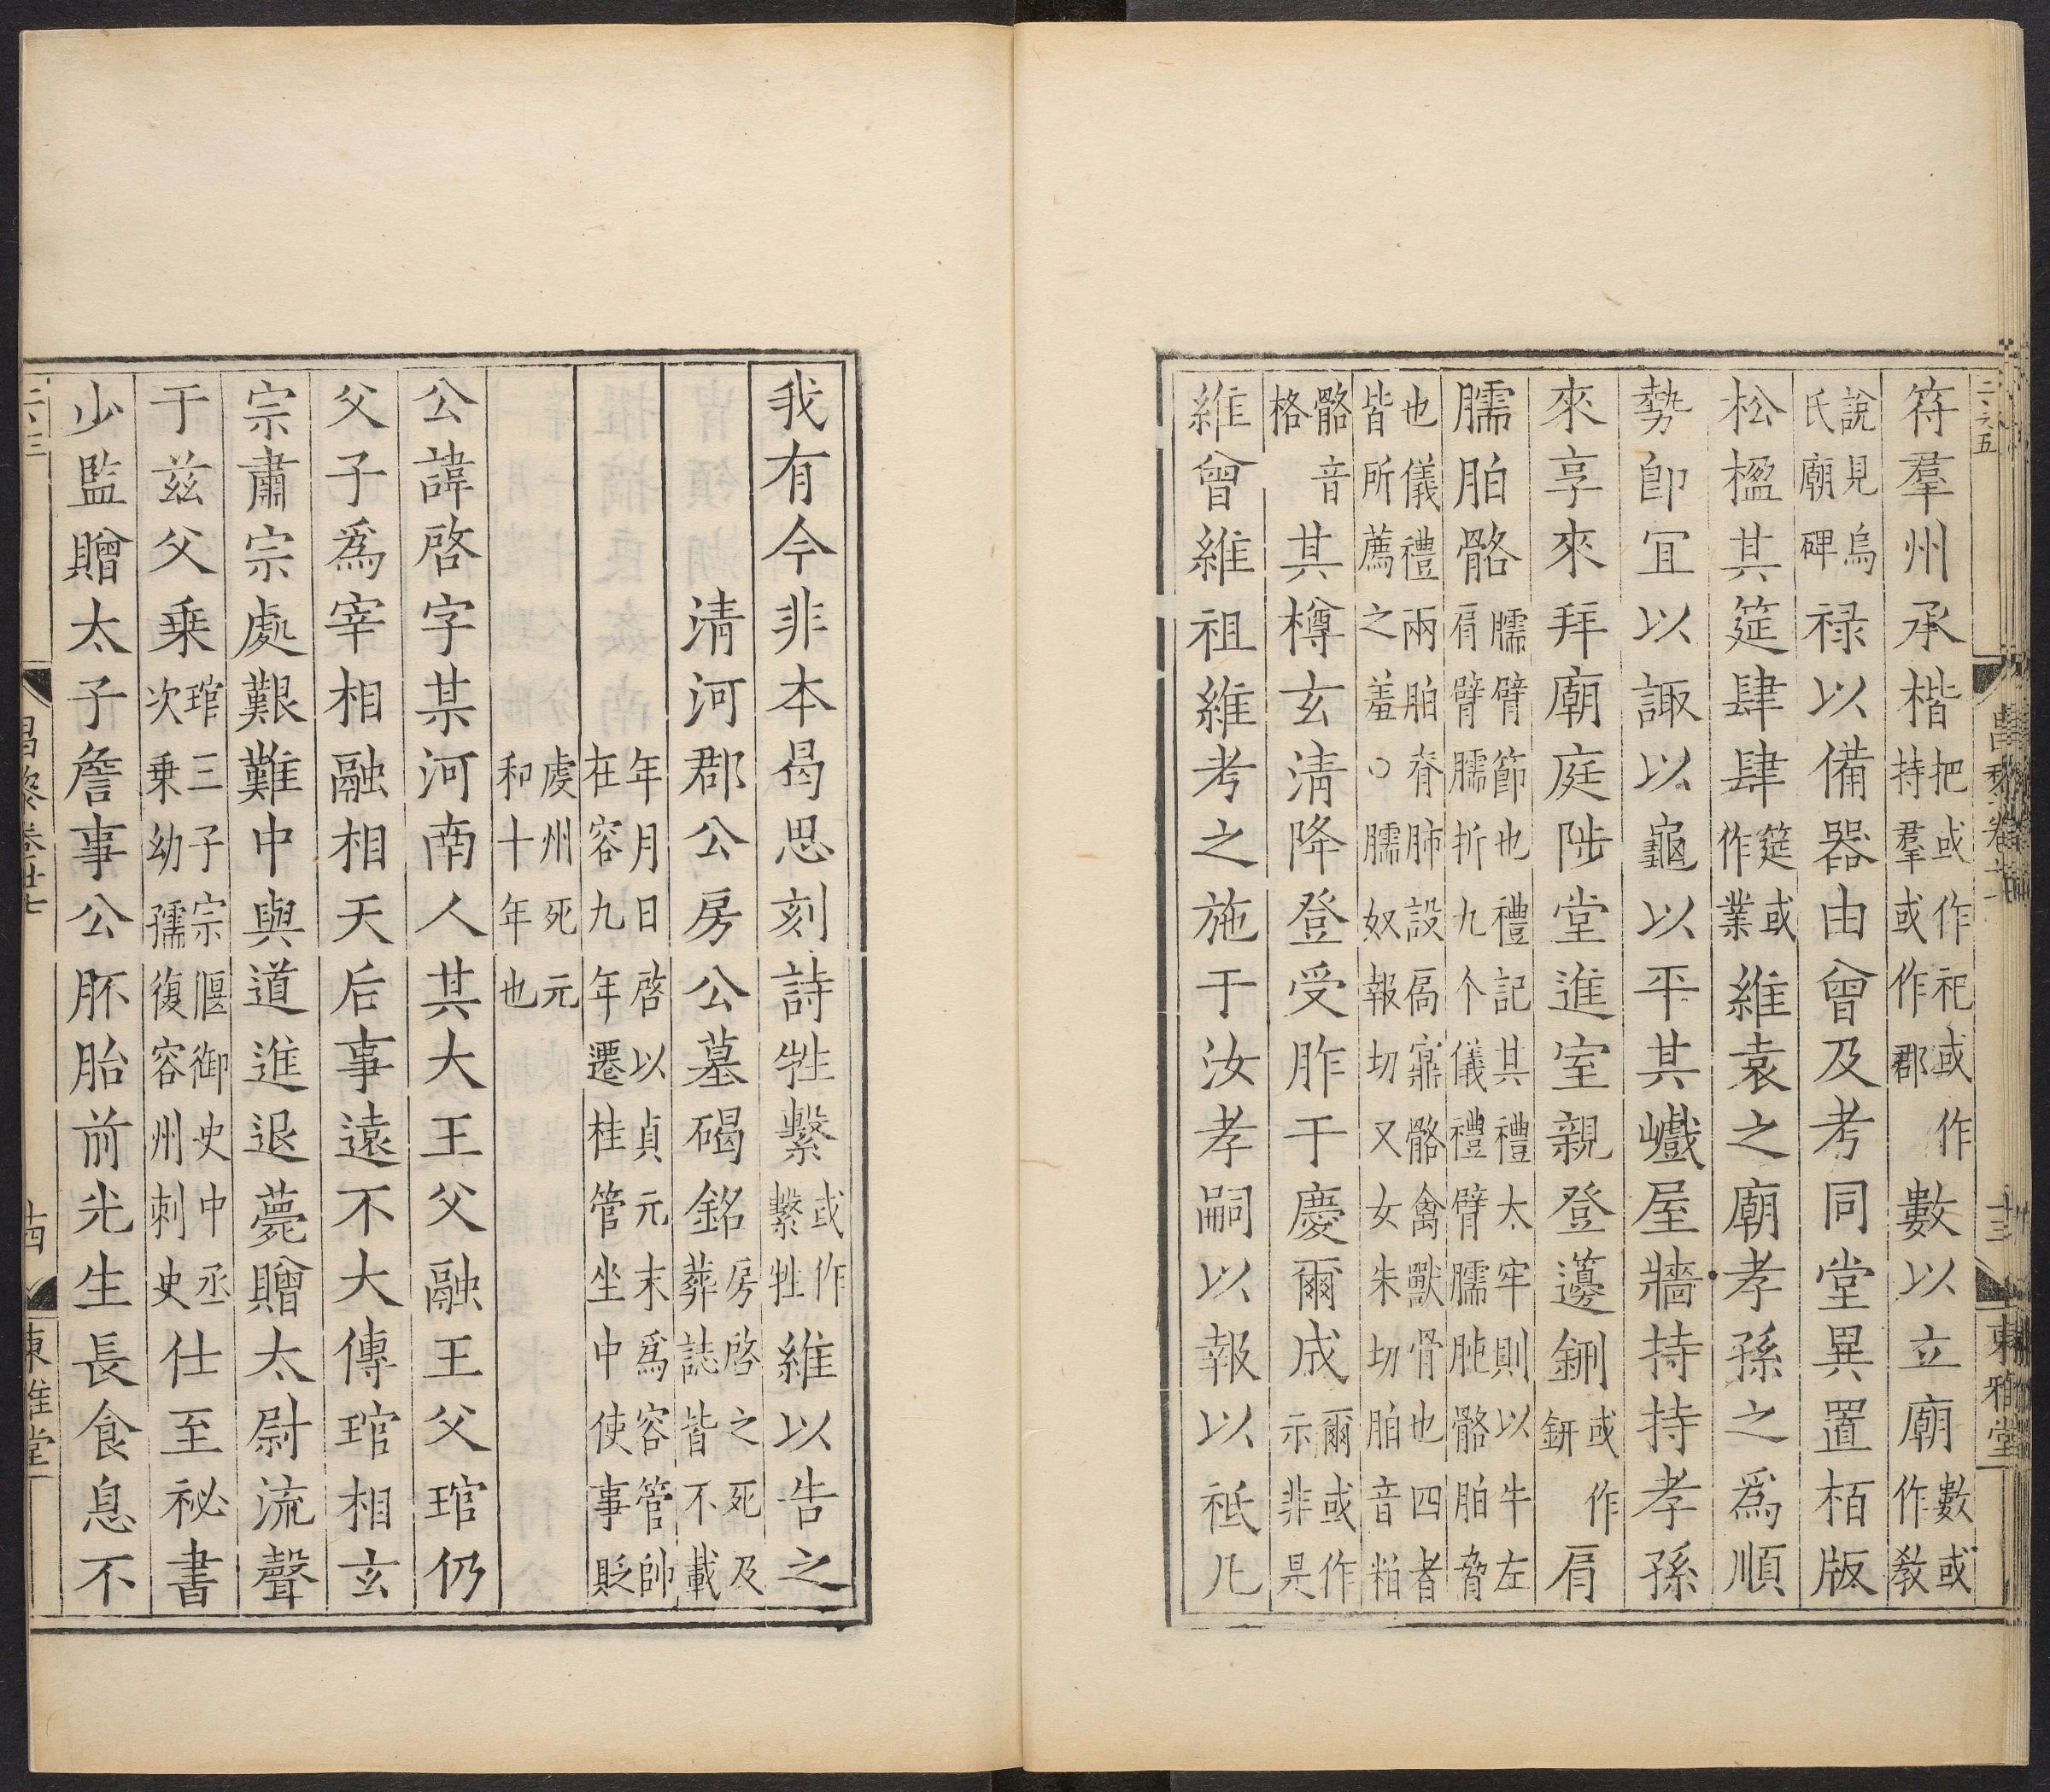 二、六五
昌黎卷
東雅堂
符羣州承楷把或作祀或作持羣或作郡數以立廟數或作敎
說見烏氏廟碑祿以備器由曾及考同堂異置栢版
松楹其筵肆肆筵或作業維袁之廟孝孫之爲順
勢卽宜以諏以龜以平其巇屋牆持持孝孫
來享來拜廟庭陟堂進室親登籩鉶或作鈃肩
臑胉骼臑臂節也禮記其禮太牢則以牛左肩臂臑折九个儀禮臂臑肫骼胉脅
也儀禮兩胉脊肺設扃鼏骼禽獸骨也四者皆所薦之羞○臑奴報切又女朱切胉音粕
骼音格其樽玄淸降登受胙于慶爾成爾或作示非是
維曾維祖維考之施于汝孝嗣以報以祗凡
我有今非本曷思刻詩牲繫或作繫牲維以告之
淸河郡公房公墓碣銘房啓之死及葬誌皆不載
年月日啓以貞元末爲容管帥在容九年遷桂管坐中使事貶
虔州死元和十年也
公諱啓字某河南人其大王父融王父琯仍
父子爲宰相融相天后事遠不大傳琯相玄
宗肅宗處艱難中與道進退薨贈太尉流聲
于兹父乗琯三子宗偃御史中丞次乗幼孺復容州刺史仕至祕書
少監贈太子詹事公胚胎前光生長食息不
二、三
昌黎卷廿七
東雅堂